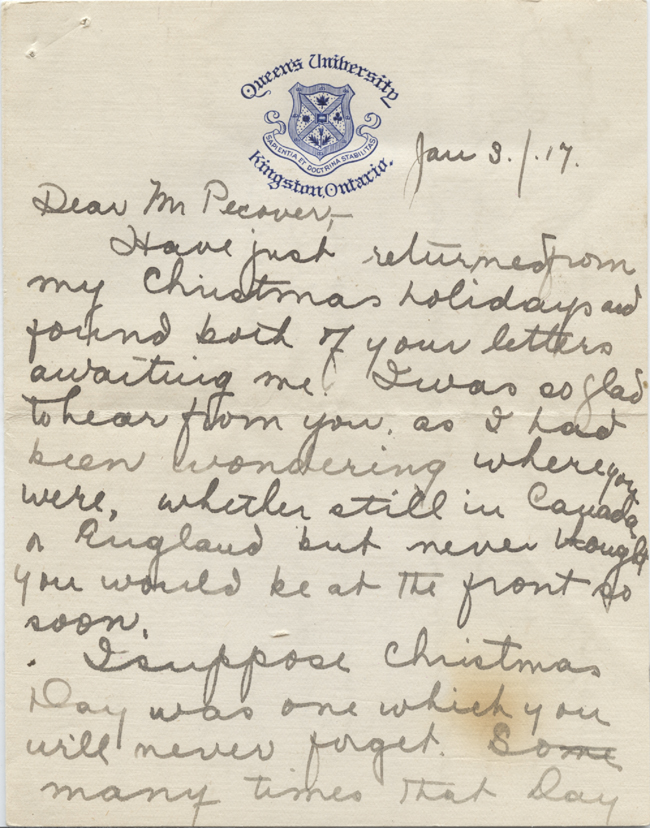 Queen's University
SAPIENTIA ET DOCTRINA STABILITAS
Kingston, Ontario.
Jan 3./.17.
Dear Mr Pecover,—
Have just returned from
my Christmas holidays and
found both of your letters
awaiting me. I was so glad
to hear from you, as I had
been wondering where you
were, whether still in Canada
or England but never thought
you would be at the front so
soon.
I suppose Christmas
Day was one which you
will never forget. So~~me~~
many times that Day